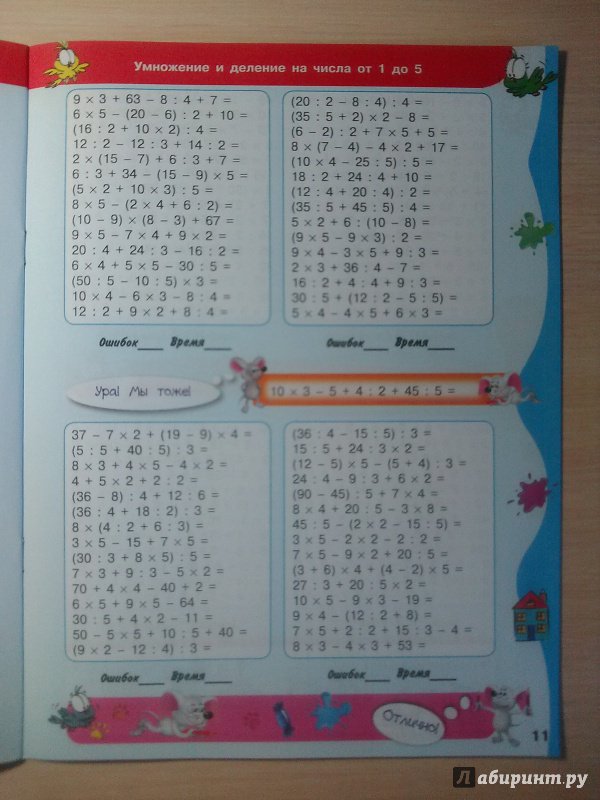 Умножение и деление на числа от 1 до 5
9 × 3 + 63 – 8 : 4 + 7 =
6 × 5 – (20 – 6) : 2 + 10 =
(16 : 2 + 10 × 2) : 4 =
12 : 2 – 12 : 3 + 14 : 2 =
2 × (15 – 7) + 6 : 3 + 7 =
6 : 3 + 34 – (15 – 9) × 5 =
(5 × 2 + 10 × 3) : 5 =
8 × 5 – (2 × 4 + 6 : 2) =
(10 – 9) × (8 – 3) + 67 =
9 × 5 – 7 × 4 + 9 × 2 =
20 : 4 + 24 : 3 – 16 : 2 =
6 × 4 + 5 × 5 – 30 : 5 =
(50 : 5 – 10 : 5) × 3 =
10 × 4 – 6 × 3 – 8 : 4 =
12 : 2 + 9 × 2 + 8 : 4 =
Ошибок____ Время____
(20 : 2 – 8 : 4) : 4 =
(35 : 5 + 2) × 2 – 8 =
(6 – 2) : 2 + 7 × 5 + 5 =
8 × (7 – 4) – 4 × 2 + 17 =
(10 × 4 – 25 : 5) : 5 =
18 : 2 + 24 : 4 + 10 =
(12 : 4 + 20 : 4) : 2 =
(35 : 5 + 45 : 5) : 4 =
5 × 2 + 6 : (10 – 8) =
(9 × 5 – 9 × 3) : 2 =
9 × 4 – 3 × 5 + 9 : 3 =
2 × 3 + 36 : 4 – 7 =
16 : 2 + 4 : 4 + 9 : 3 =
30 : 5 + (12 : 2 – 5 : 5) =
5 × 4 – 4 × 5 + 6 × 3 =
Ошибок____ Время____
Ура! Мы тоже!
10 × 3 – 5 + 4 : 2 + 45 : 5 =
37 – 7 × 2 + (19 – 9) × 4 =
(5 : 5 + 40 : 5) : 3 =
8 × 3 + 4 × 5 – 4 × 2 =
4 + 5 × 2 + 2 : 2 =
(36 – 8) : 4 + 12 : 6 =
(36 : 4 + 18 : 2) : 3 =
8 × (4 : 2 + 6 : 3) =
3 × 5 – 15 + 7 × 5 =
(30 : 3 + 8 × 5) : 5 =
7 × 3 + 9 : 3 – 5 × 2 =
70 + 4 × 4 – 40 + 2 =
6 × 5 + 9 × 5 – 64 =
30 : 5 + 4 × 2 – 11 =
50 – 5 × 5 + 10 : 5 + 40 =
(9 × 2 – 12 : 4) : 3 =
Ошибок____ Время____
(36 : 4 – 15 : 5) : 3 =
15 : 5 + 24 : 3 × 2 =
(12 – 5) × 5 – (5 + 4) : 3 =
24 : 4 – 9 : 3 + 6 × 2 =
(90 – 45) : 5 + 7 × 4 =
8 × 4 + 20 : 5 – 3 × 8 =
45 : 5 – (2 × 2 – 15 : 5) =
3 × 5 – 2 × 2 – 2 : 2 =
7 × 5 – 9 × 2 + 20 : 5 =
(3 + 6) × 4 + (4 – 2) × 5 =
27 : 3 + 20 : 5 × 2 =
10 × 5 – 9 × 3 – 19 =
9 × 4 – (12 : 2 + 8) =
7 × 5 + 2 : 2 + 15 : 3 – 4 =
8 × 3 – 4 × 3 + 53 =
Ошибок____ Время____
Отлично!
11
Лабиринт.ру